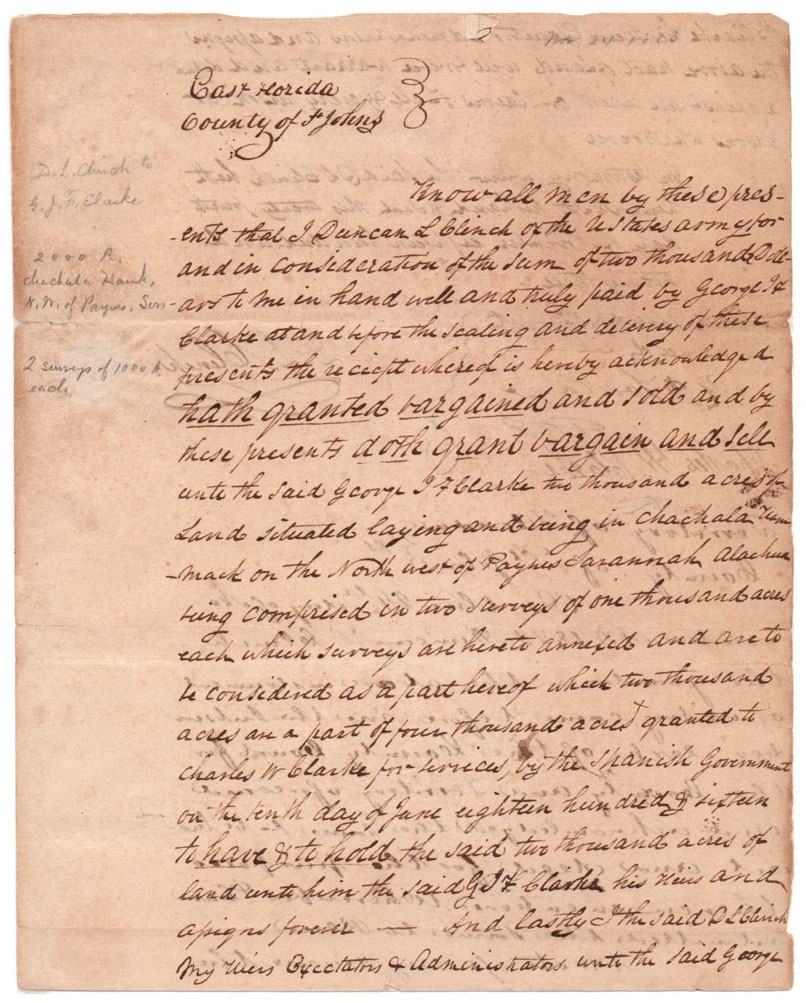 2
East Florida
County of St Johns
D. L. Clinch to
G. J. F. Clarke
2000 A.
Chachala Hamk,
N.W. of Paynes Sav
2 surveys of 1000 A
each
Know all men by these pres-
-ents that I Duncan L Clinch of the U States army for
and in consideration of the sum of two thousand Doll-
-ars to me in hand well and truly paid by George J F
Clarke at and before the sealing and delivery of these
presents the reciept whereof is hereby acknowledged
hath granted bargained and sold and by
these presents doth grant bargain and sell
unto the said George J F Clarke two thousand acres of
Land situated laying and being in Chachala Hum
-mack on the North west of Paynes Savannah Alachua
being comprised in two surveys of one thousand acres
each which surveys are hereto annexed and are to
be considered as a part hereof which two thousand
acres are a part of four thousand acres granted to
Charles W Clarke for services, by the Spanish Government
on the tenth day of June eighteen hundred & sixteen
to have & to hold the said two thousand acres of
land unto him the said G J F Clarke his Heirs and
assigns forever — And lastly I the said D L Clinch
My Heirs Exectators & Administrators unto the said George